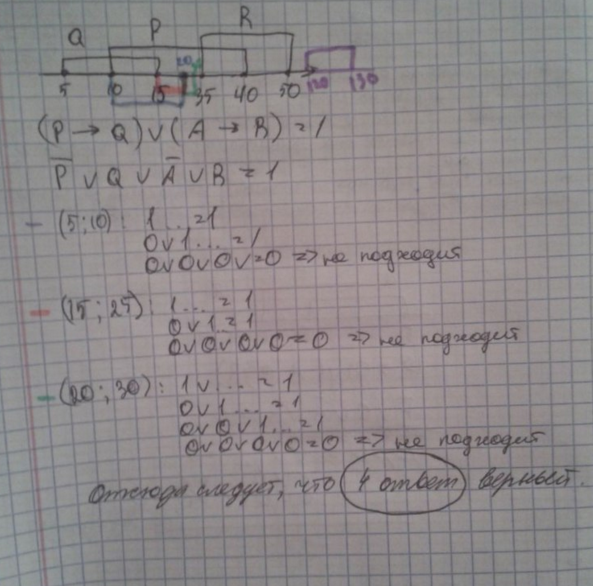 Q P R
20
5 10 15 35 40 50 120 130
(P → Q) ∨ (A → R) = 1
P̅ ∨ Q ∨ A̅ ∨ R = 1
– (5;10): 1 ... = 1
0∨1 ... = 1
0∨0∨0∨=0 => не подходит
– (15; 25): 1 ... = 1
0∨1 = 1
0∨0∨0∨0=0 => не подходит
– (20; 30): 1∨ ... = 1
0∨1 ... = 1
0∨0∨1 ... = 1
0∨0∨0∨0=0 => не подходит
Отсюда следует, что 4 ответ верный.